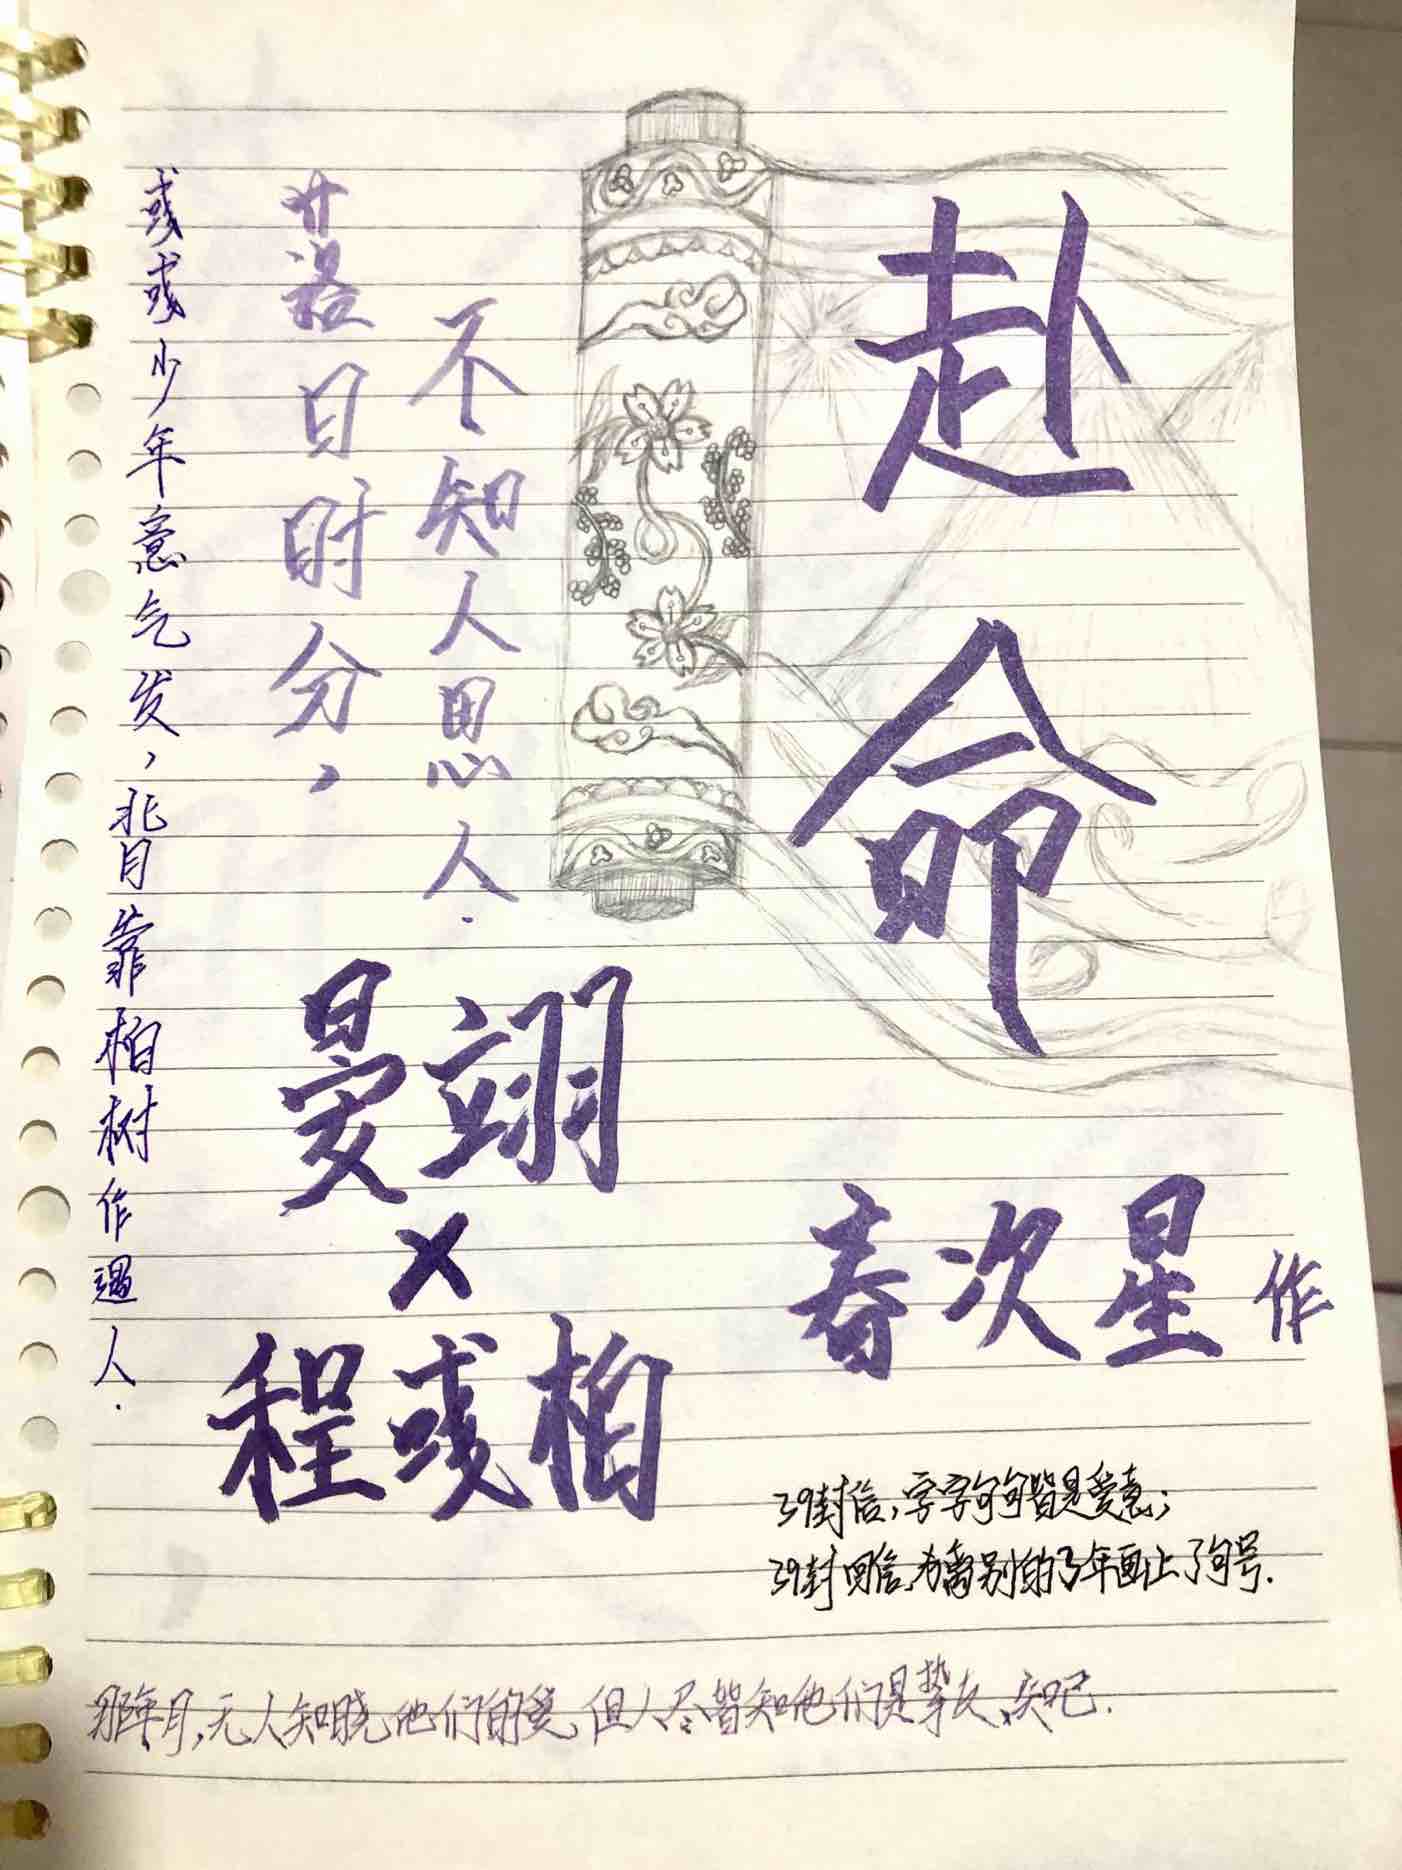 赴命
春次星 作
不知人思人.
落日时分，
彧彧少年意气发，背靠柏树作過人.
晏翊
×
程彧柏
39封信，字字句句皆是爱意；
39封回信，为离别的3年画上了句号.
那年月，无人知晓他们的爱，但人尽皆知他们是挚友、知己.